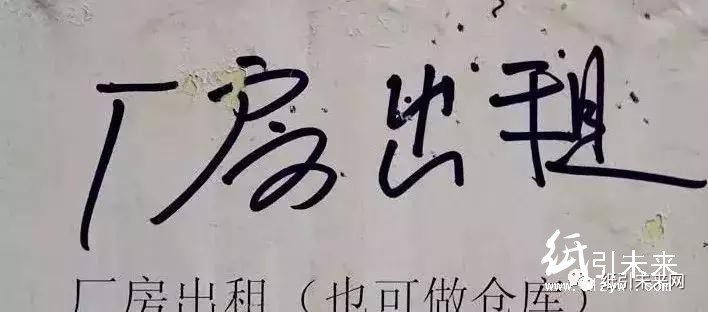 厂房出租
厂房出租（也可做仓库）
纸引未来
纸引未来网